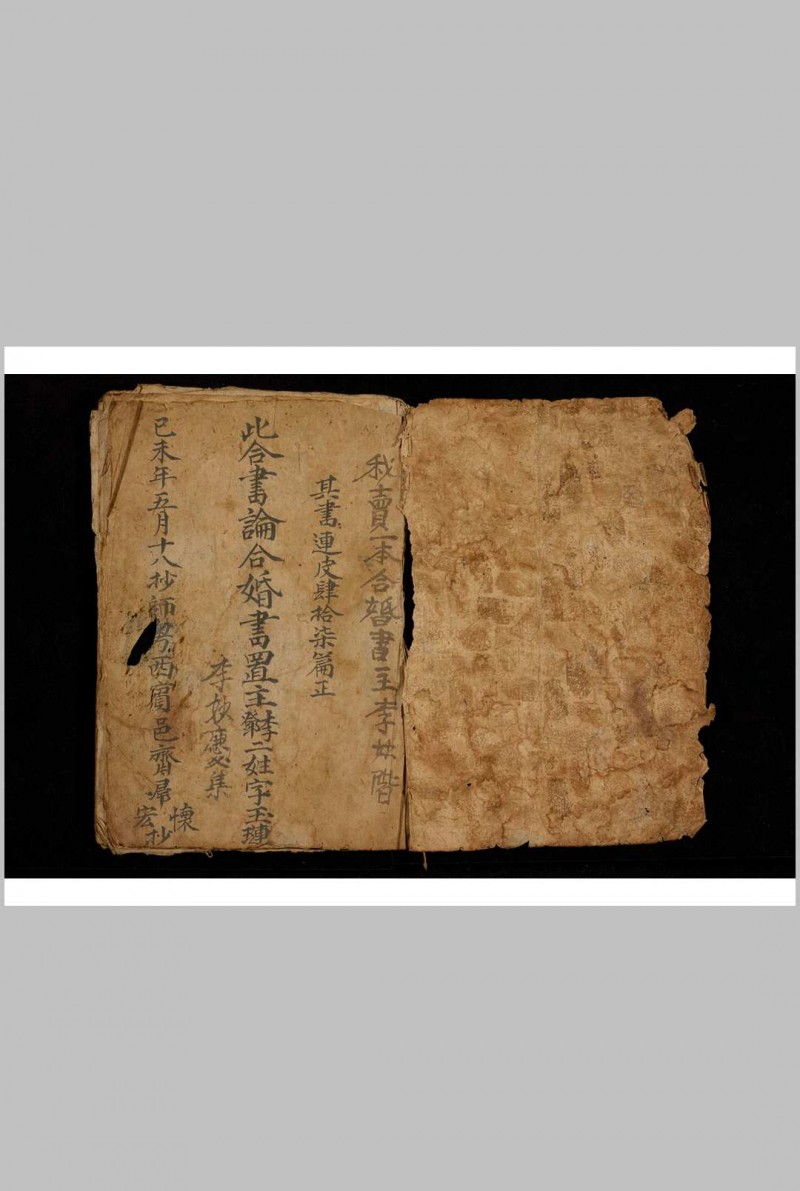 我賣一本合婚書主李
其書連皮肆拾柒篇正
此合書論合婚書置主李鄧二姓字玉璉
李 集
已未年五月十八抄師 西賓邑齋歸
懷宏抄